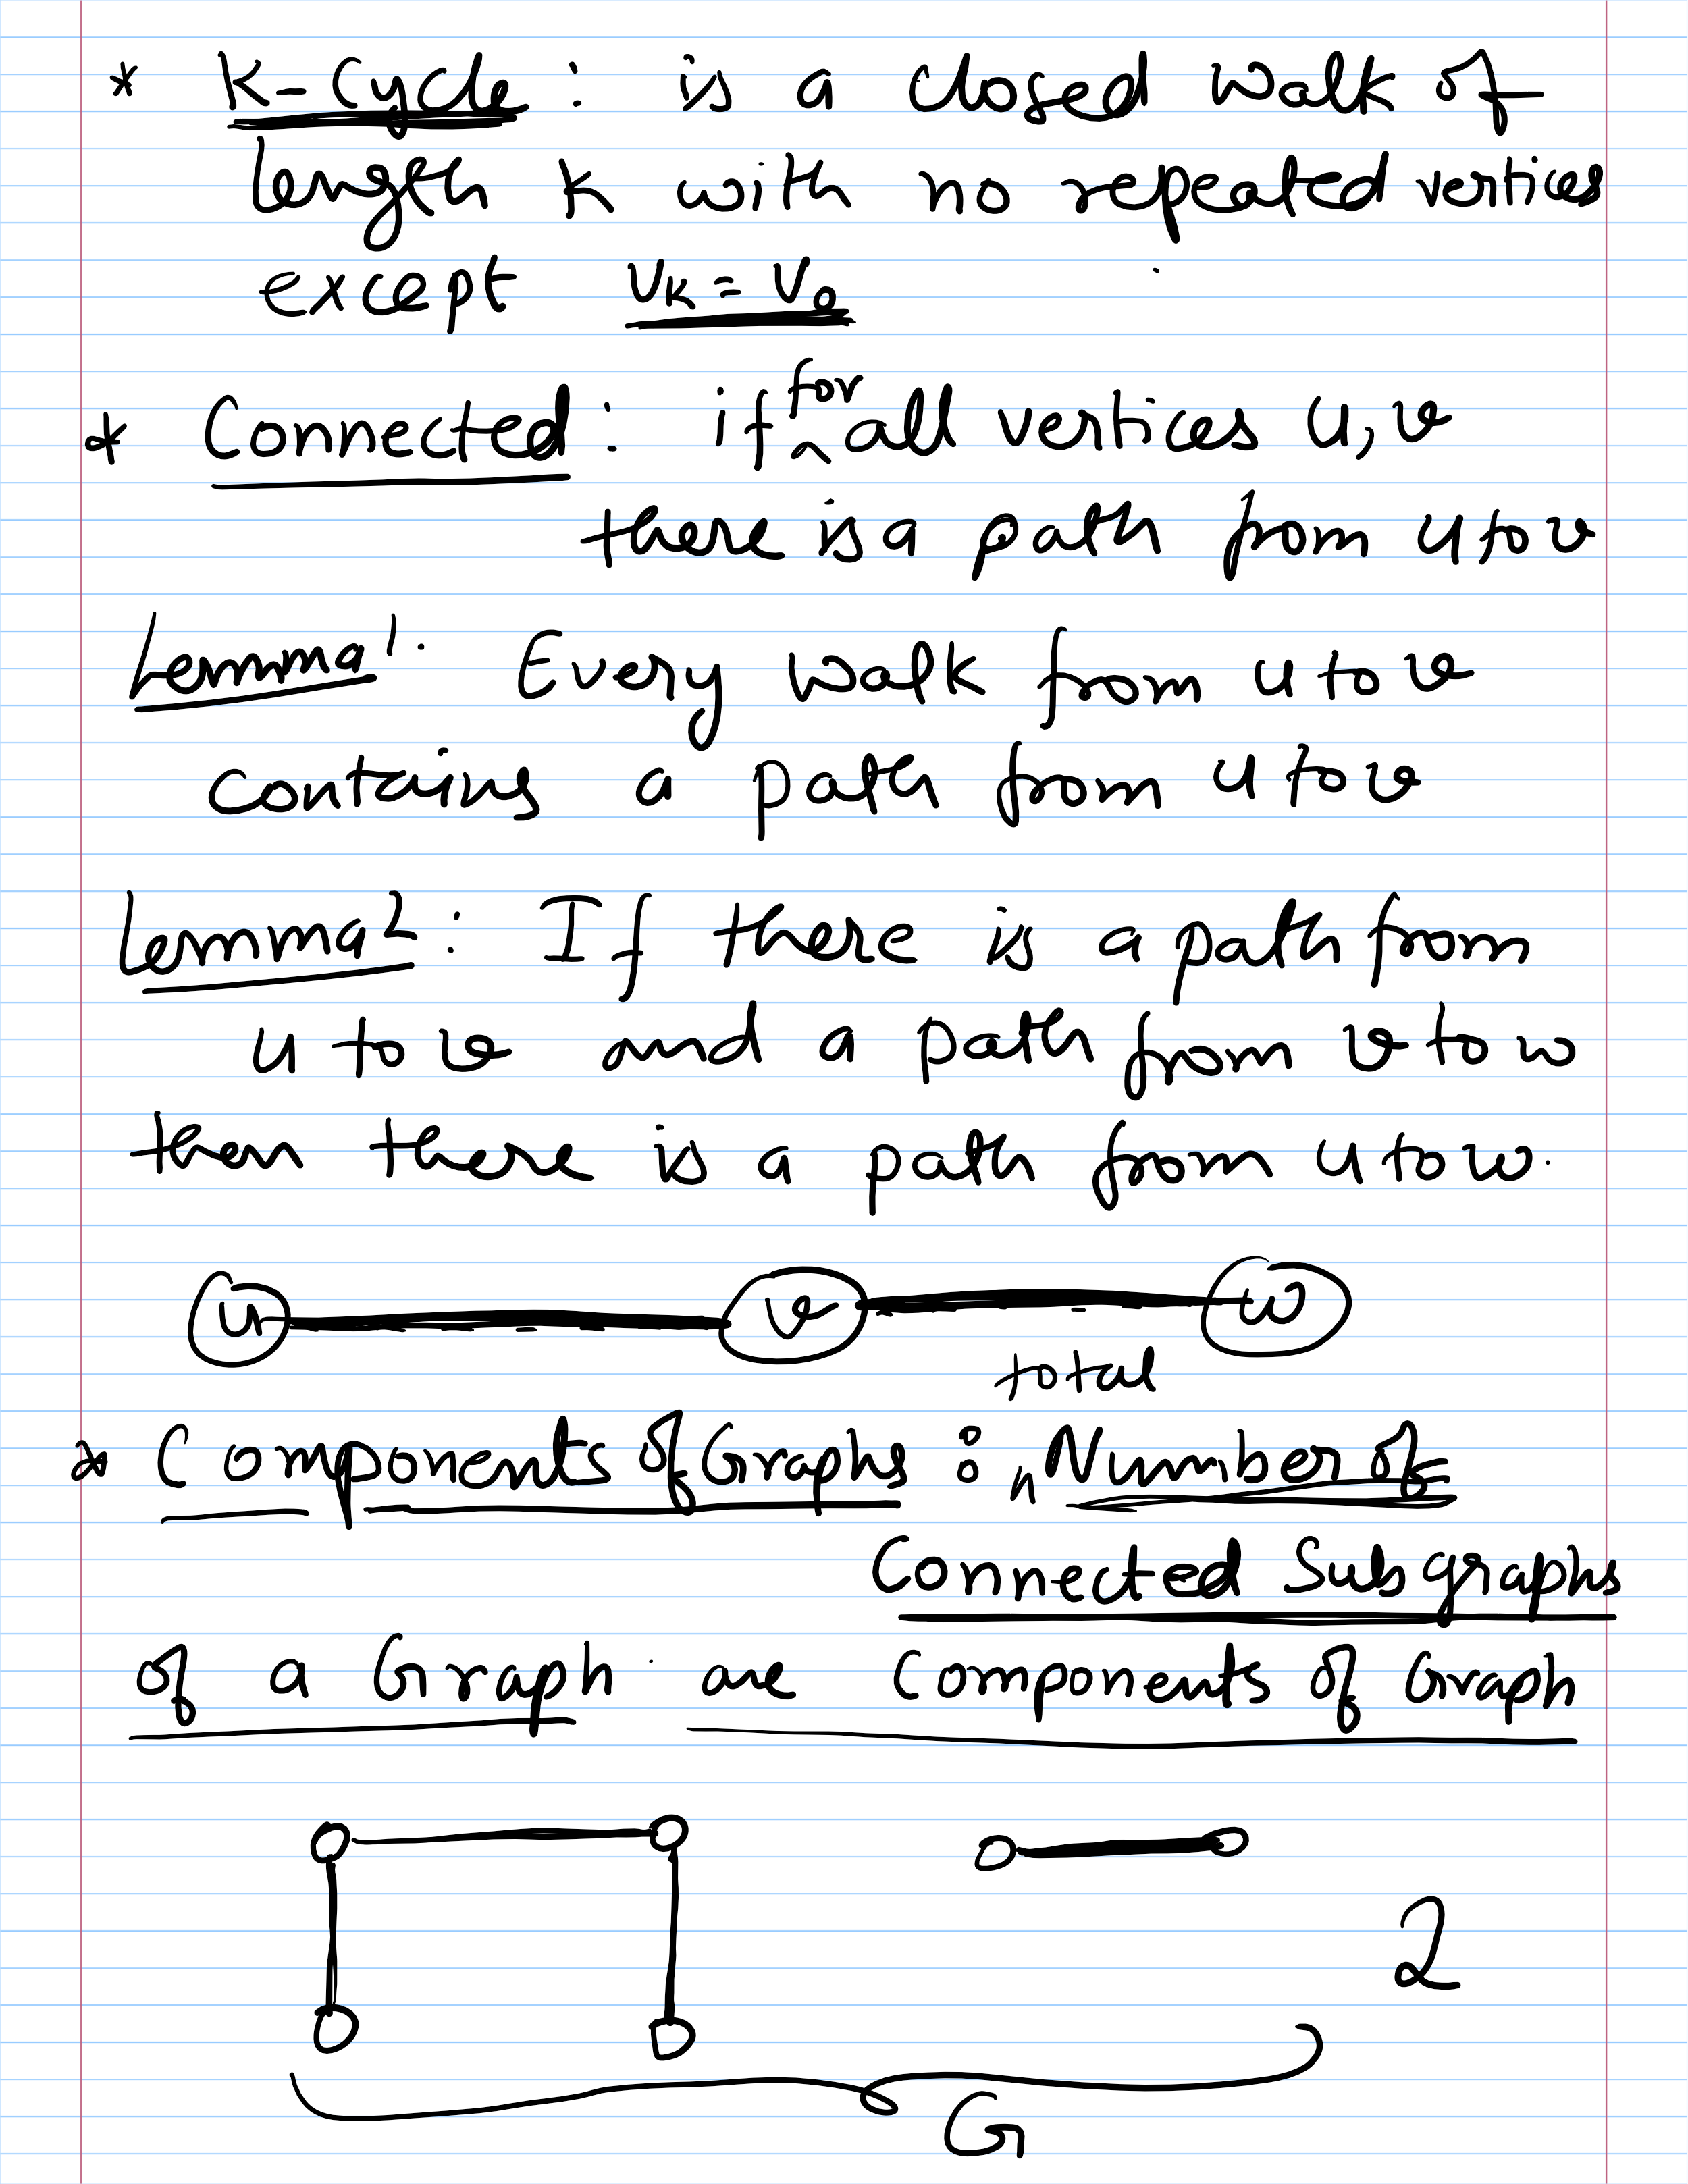 * K-Cycle : is a closed walk of
length k with no repeated vertices
except vk = v0
* Connected : if for all vertices u,v
there is a path from u to v
Lemma 1: Every walk from u to v
contains a path from u to v
Lemma 2: If there is a path from
u to v and a path from v to w
then there is a path from u to w.
u v w
total
* Components of Graphs : Number of
Connected Subgraphs
of a Graph are Components of Graph
2
G